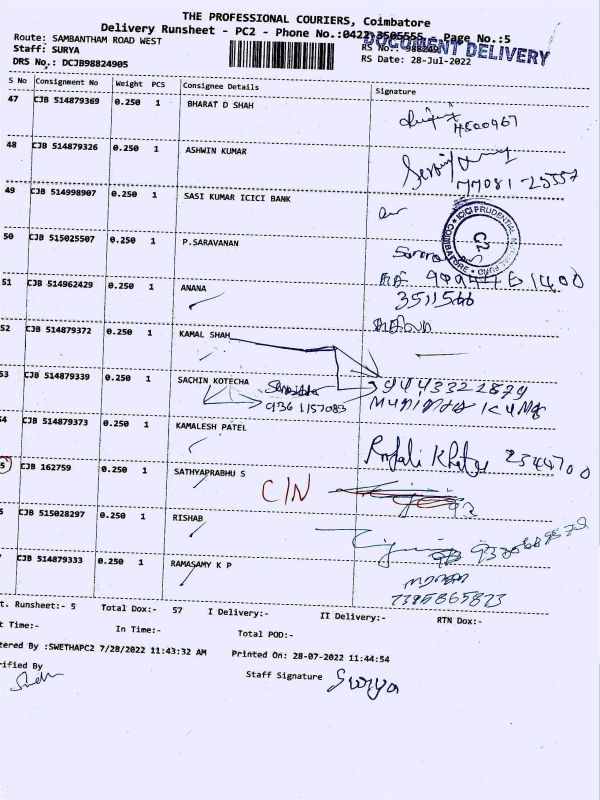 THE PROFESSIONAL COURIERS, Coimbatore
Delivery Runsheet - PC2 - Phone No.:0422-3505555 Page No.:5
DOCUMENT DELIVERY
Route: SAMBANTHAM ROAD WEST
RS No.: 988249
Staff: SURYA
RS Date: 28-Jul-2022
DRS No.: DCJB98824905
S No Consignment No Weight PCS Consignee Details Signature
47 CJB 514879369 0.250 1 BHARAT D SHAH
48 CJB 514879326 0.250 1 ASHWIN KUMAR
77081-25557
49 CJB 514998907 0.250 1 SASI KUMAR ICICI BANK
ICICI PRUDENTIAL MUTUAL FUND COIMBATORE
50 CJB 515025507 0.250 1 P.SARAVANAN
51 CJB 514962429 0.250 1 ANANA
3511566
52 CJB 514879372 0.250 1 KAMAL SHAH
9443322879
53 CJB 514879339 0.250 1 SACHIN KOTECHA
9361157083
54 CJB 514879373 0.250 1 KAMALESH PATEL
2344700
5 CJB 162759 0.250 1 SATHYAPRABHU S
C/N
CJB 515028297 0.250 1 RISHAB
CJB 514879333 0.250 1 RAMASAMY K P
7395865823
t. Runsheet:- 5 Total Dox:- 57 I Delivery:- II Delivery:- RTN Dox:-
t Time:- In Time:- Total POD:-
tered By :SWETHAPC2 7/28/2022 11:43:32 AM Printed On: 28-07-2022 11:44:54
rified By Staff Signature Surya